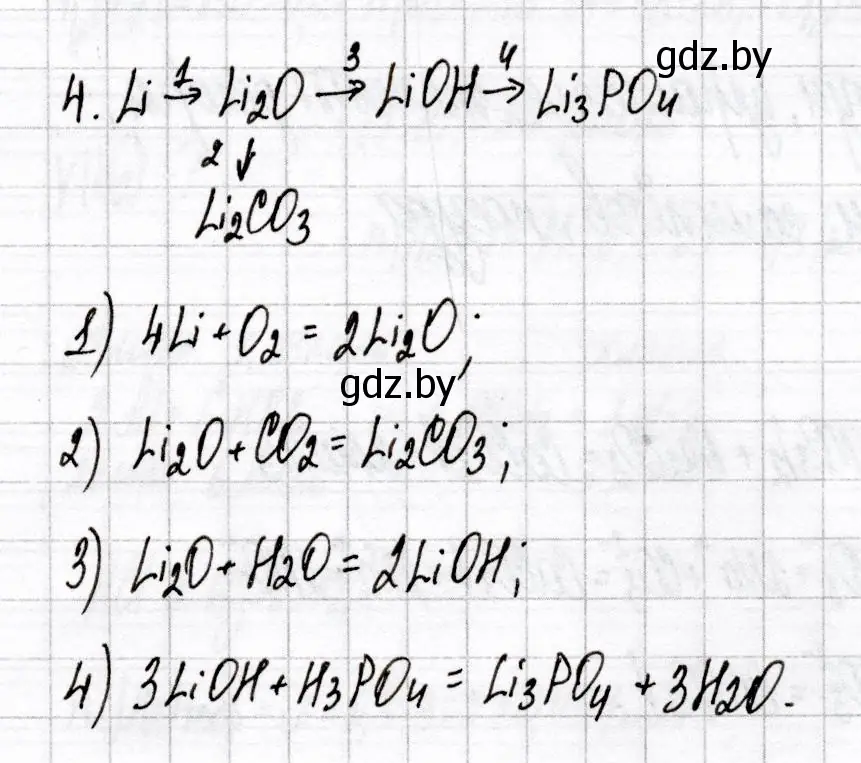 gdz.by
4. Li 1→ Li2O 3→ LiOH 4→ Li3PO4
2 ↓
Li2CO3
1) 4Li + O2 = 2Li2O;
gdz.by
2) Li2O + CO2 = Li2CO3;
3) Li2O + H2O = 2LiOH;
4) 3LiOH + H3PO4 = Li3PO4 + 3H2O.